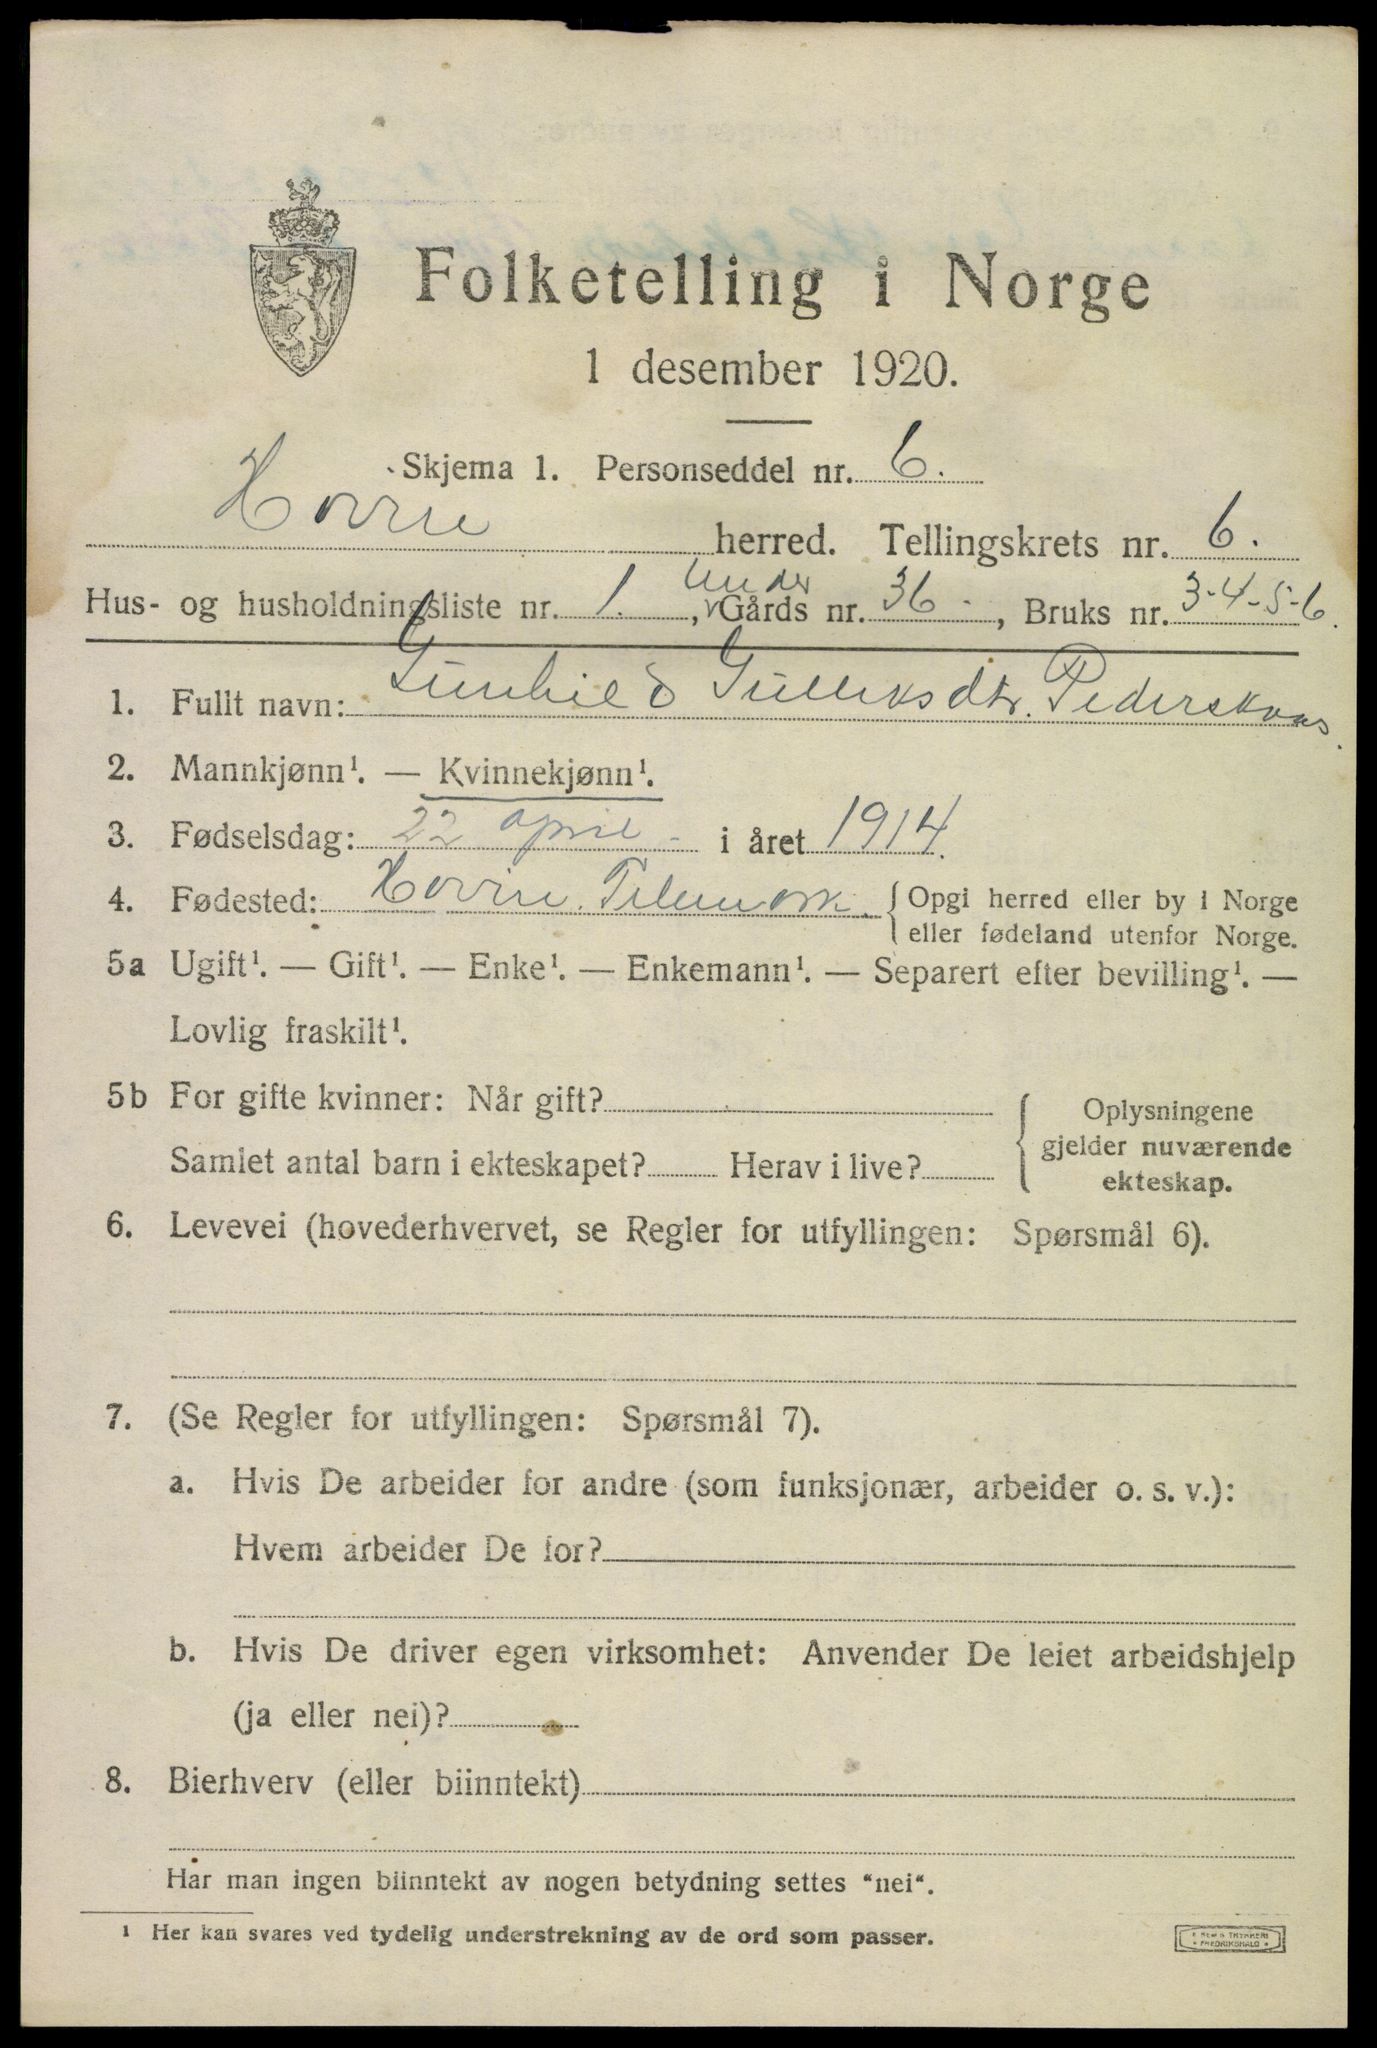 Folketelling i Norge
1 desember 1920.
Skjema 1. Personseddel nr. 6.
Hovin herred. Tellingskrets nr. 6.
Under
Hus- og husholdningsliste nr. 1. , Gårds nr. 36 - , Bruks nr. 3-4-5-6.
1. Fullt navn: Gunhild Gulleksdtr. Pederskaas.
2. Mannkjønn¹. — Kvinnekjønn¹.
3. Fødselsdag: 22 april - i året 1914.
4. Fødested: Hovin. Telemork. { Opgi herred eller by i Norge
eller fødeland utenfor Norge.
5a Ugift¹. — Gift¹. — Enke¹. — Enkemann¹. — Separert efter bevilling¹. —
Lovlig fraskilt¹.
5b For gifte kvinner: Når gift?
Samlet antal barn i ekteskapet? Herav i live?
{ Oplysningene
gjelder nuværende
ekteskap.
6. Levevei (hovederhvervet, se Regler for utfyllingen: Spørsmål 6).
7. (Se Regler for utfyllingen: Spørsmål 7).
a. Hvis De arbeider for andre (som funksjonær, arbeider o. s. v.):
Hvem arbeider De for?
b. Hvis De driver egen virksomhet: Anvender De leiet arbeidshjelp
(ja eller nei)?
8. Bierhverv (eller biinntekt)
Har man ingen biinntekt av nogen betydning settes “nei“.
¹ Her kan svares ved tydelig understrekning av de ord som passer.
FREDRIKSHALD